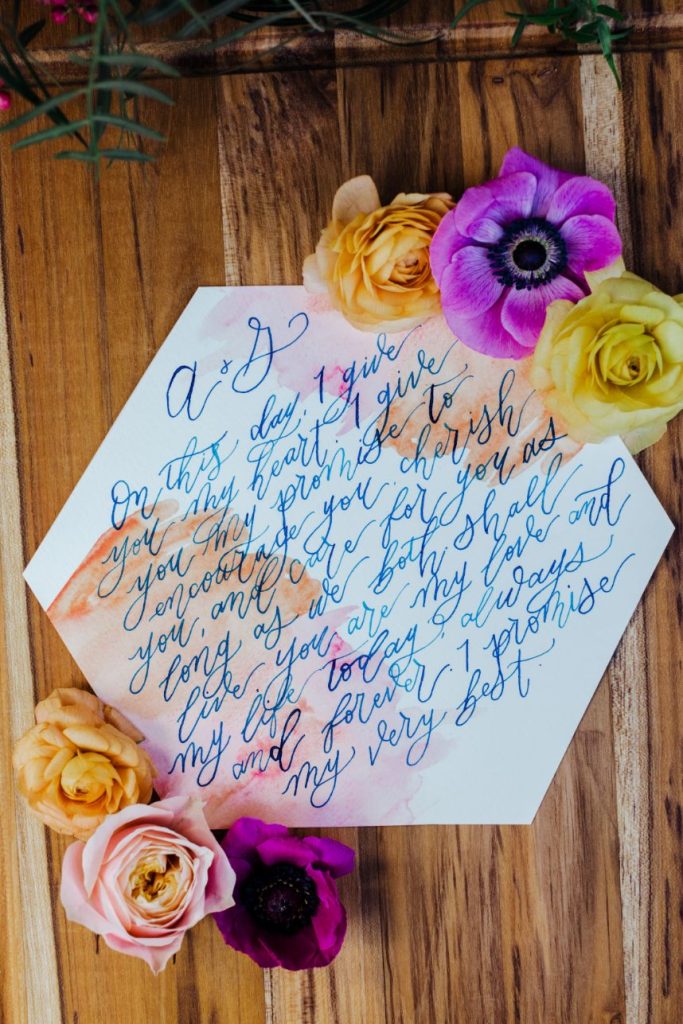 a & G
On this day, I give
you my heart. I give
you my promise to
encourage you, cherish
you, and care for you as
long as we both shall
live. you are my love and
my life today, always
and forever. I promise
my very best.